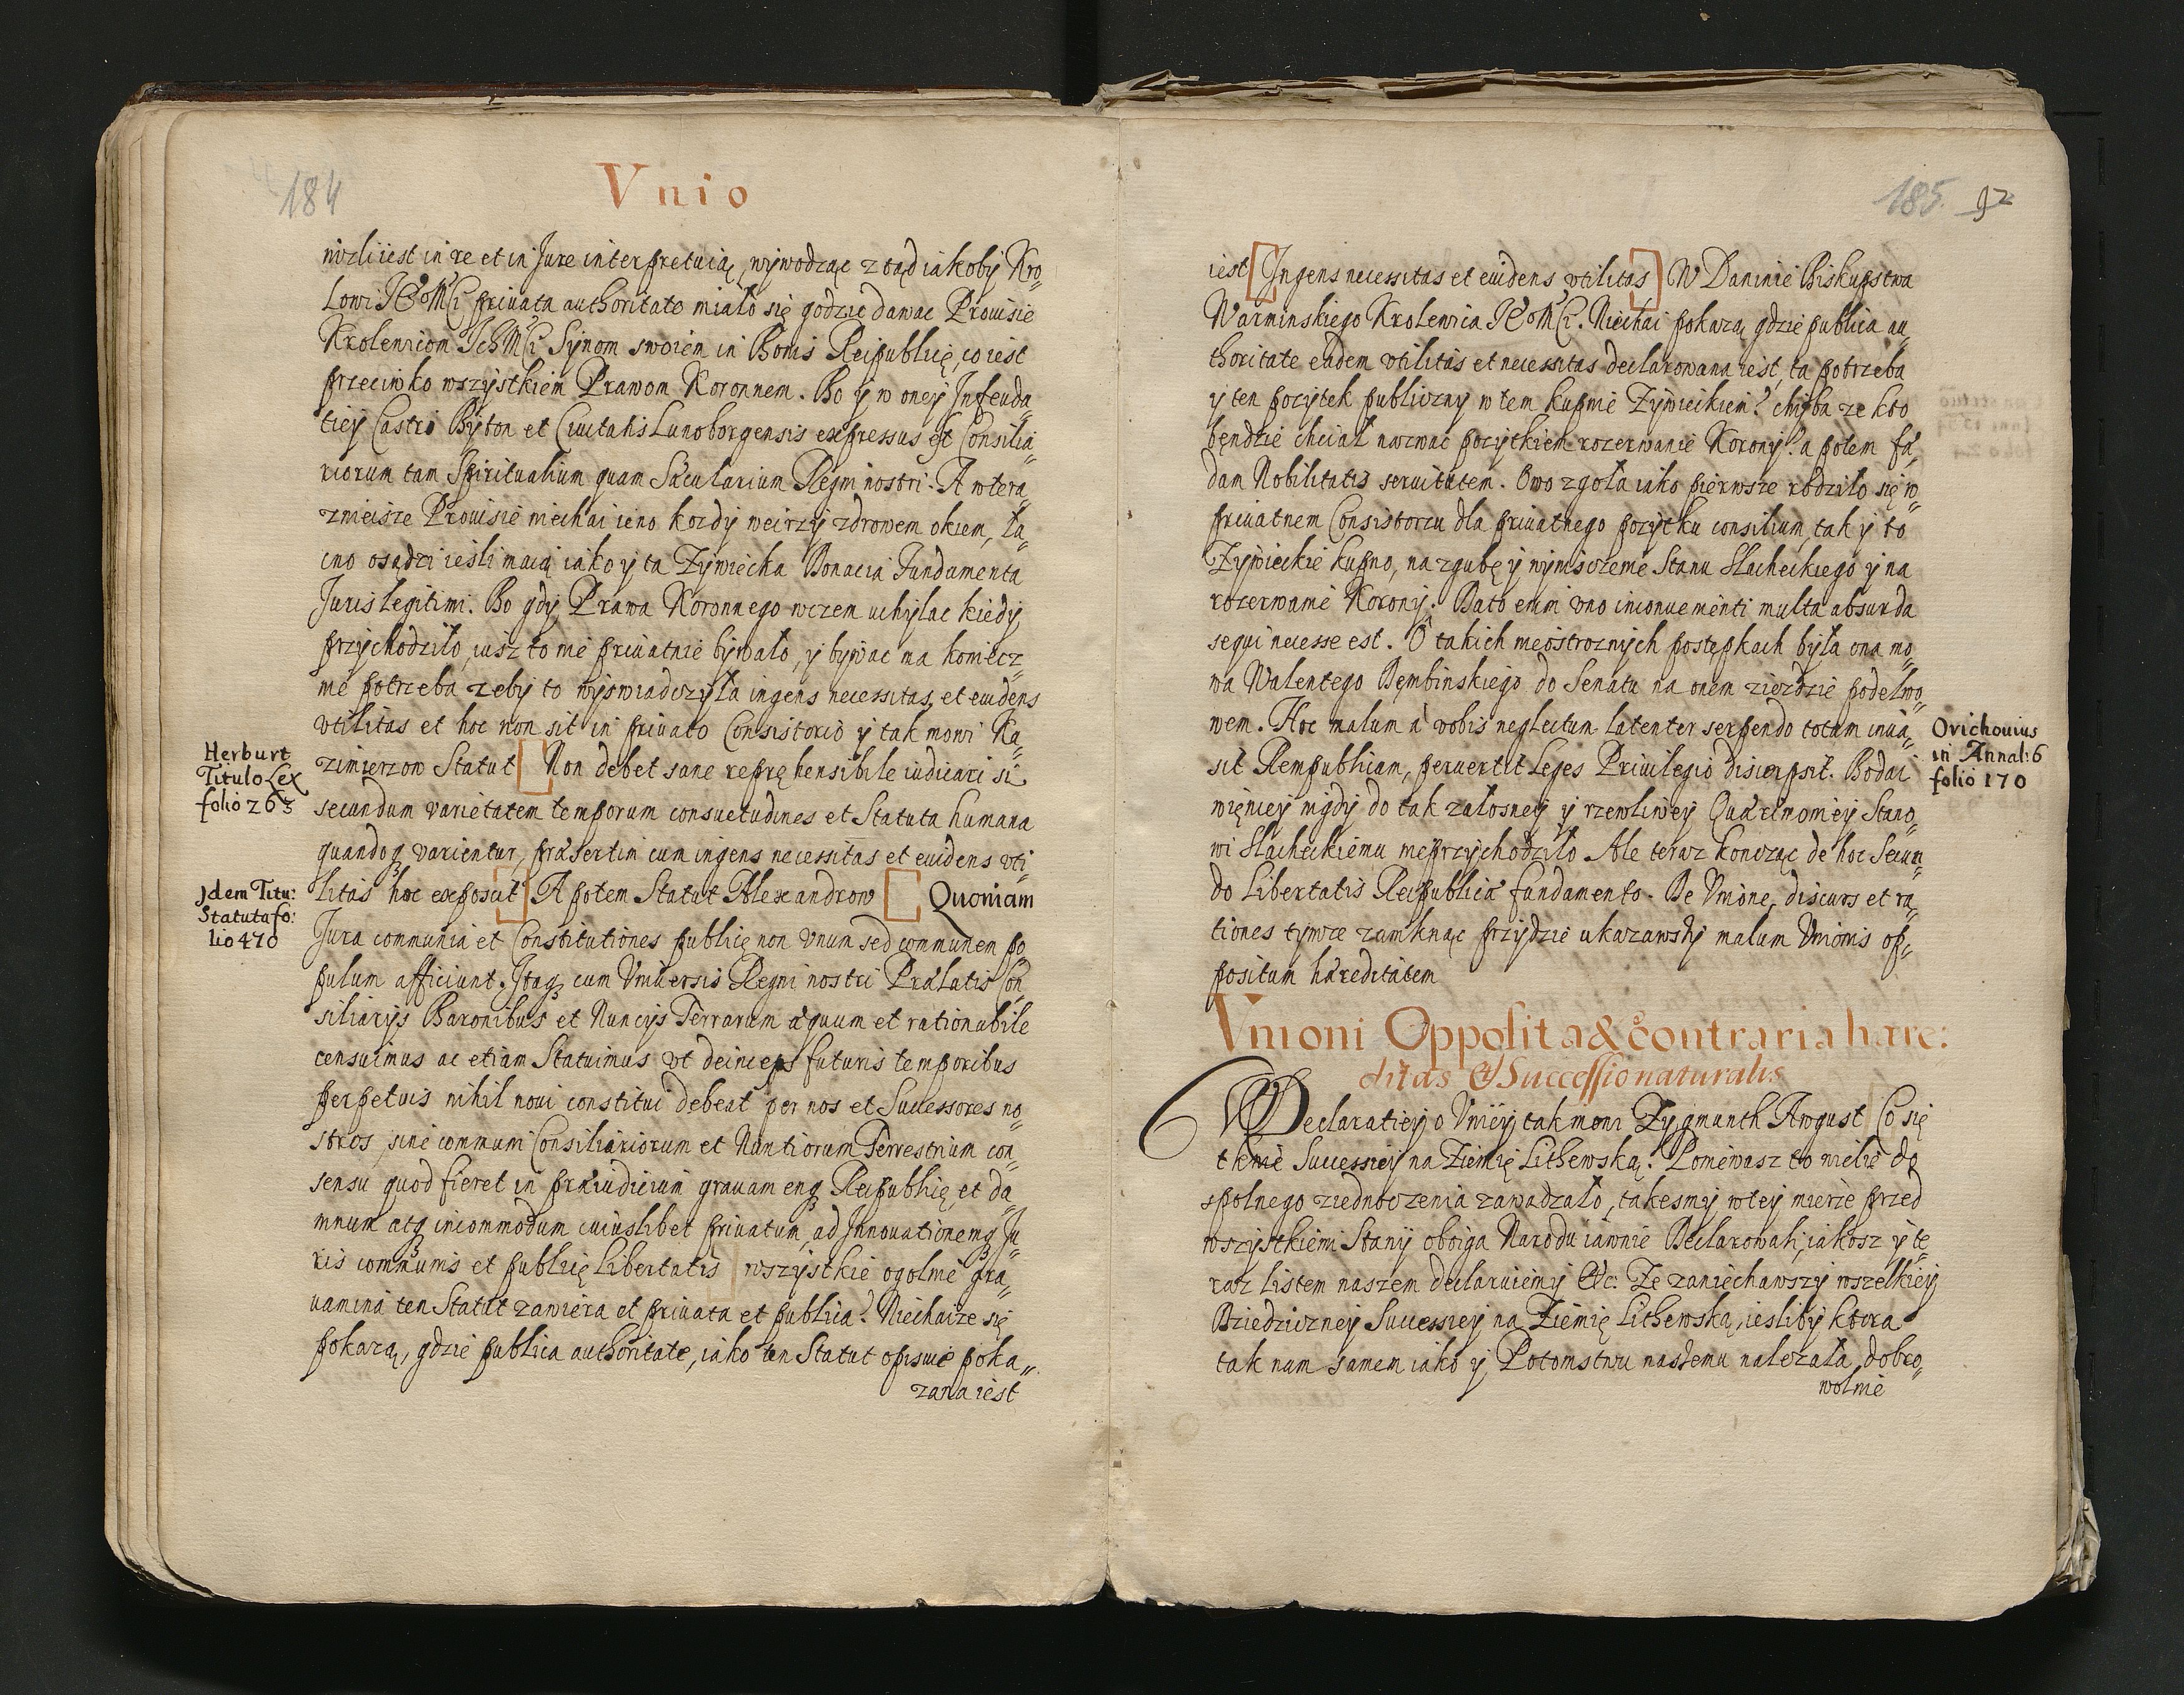 184
Vnio
niżli iest in re et in Jure interpretuią, wywodząc ztąd iakoby Kro„
Lowi JE°M°Ci priuata authoritate miało się godzic dawac Prouisie
Krolewicom JchMci Synom swoiem in Bonis Reipublicę, co iest
przeciwko wszystkiem Prawom Koronnem. Bo y w oney Jnfeuda„
tiey Castri Byton et Ciuitatis Lunoborgensis expressus est Consilia„
riorum tam Spiritualium quam Sæcularium Regni nostri. A w tera„
znieisze Prouisie niechai ieno kozdy weirzy zdrowem okiem, ła„
cno osądzi iesli maią iako y ta Zywiecka Donacia Fundamenta
Juris legitimi. Bo gdy Prawa Koronnego wczem uchylac kiedy
przychodziło, iusz to nie priuatnie bywało, y bywac na koniecz„
nie potrzeba zeby to wyswiadczyła ingens necessitas, et euidens
vtilitas et hoc non sit in priuato Consistorio y tak mowi Ka„
zimierzow Statut [ Non debet sane reprę hensibile iudicari si
secundum varietatem temporum consuetudines et Statuta humana
quandoq varientur, præsertim cum ingens necessitas et euidens vti„
litas hoc exposcit ] A potem Statut Alexandrow [ Quoniam
Jura communia et Constitutiones publicę non vnum sed communem po„
pulum afficiunt. Jtaq cum Vniuersis Regni nostri Prælatis Con„
siliarijs Baronibus et Nuncijs Terrarum æquum et rationabile
censuimus ac etiam Statuimus vt deinceps futuris temporibus
perpetuis nihil noui constitui debeat per nos et Successores no„
stros, sine communi Consiliariorum et Nuntiorum Terrestrium con„
sensu quod fieret in præiudicium grauamenq Reipublicę et da„
mnum atq incommodum cuiuslibet priuatum, ad Jnnouationemq Ju„
ris communis et publicę libertatis ] wszystkie ogolnie gra„
uamina ten Statut zawiera et priuata et publica? Niechaize się
pokazą, gdzie publica authoritate, iako ten Statut opisuie poka„
zana iest
Herburt
Titulo Lex
folio 263
Jdem Titu:
Statuta fo:
lio 470
185. 92
iest [ Jngens necessitas et euidens vtilitas ] W Daninie Biskupstwa
Warminskiego Krolewica JE°M°Ci. Niechai pokazą gdzie publica au„
thoritate eadem vtilitas et necessitas declarowana iest, ta potrzeba
y ten pozytek publiczny w tem kupnie Zywieckiem? chyba ze kto
bendzie chciał nazwac pozytkiem rozerwanie Korony? a potem fæ„
dam Nobilitatis seruitutem. Owo zgoła iako pierwsze rodziło się w„
priuatnem Consistorzu dla priuatnego pozytku consilium, tak y to
Zywieckie kupno, na zgubę y wyniszczenie Stanu Slacheckiego y na
rozerwanie Korony. Dato enim vno inconuenienti multa absurda
sequi necesse est. O takich nieostroznych postępkach była ona mo„
wa Walentego Dembinskiego do Senatu na onem ziezdzie podelwo„
wem. Hoc malum à vobis neglectum latenter serpendo totam inua„
sit Rempublicam, peruertit Leges Priuilegio discerpsit. Bodai
więncey nigdy do tak załosney y rzewliwey Quærimoniey Stano„
wi Slacheckiemu nieprzychodziło Ale teraz koncząc de hoc Secun„
do Libertatis Reipublicæ fundamento. De Vnione, discurs et ra„
tiones tymze zamknąc przydzie ukazawszy malum Vnionis op„
positum hæreditatem
Vnioni Opposita & contraria hære:
ditas & Successio naturalis
W Declaratiey o Vniey tak mowi Zygmunth Awgust [ Co się
tknie Successiey na Ziemię Lithewską. Poniewasz to wielie do
spolnego ziednoczenia zawadzało, takesmy w tey mierze przed
wszystkiemi Stany oboiga Narodu iawnie Declarowali, iakosz y te„
raz listem naszem declaruiemy &c: Ze zaniechawszy wszelkiey
Dziedziczney Successiey na Ziemię Lithewską, iesliby ktora
tak nam samem iako y Potomstwu naszemu nalezała, dobro„
wolnie
Orichouius
in Annal: 6
folio 170